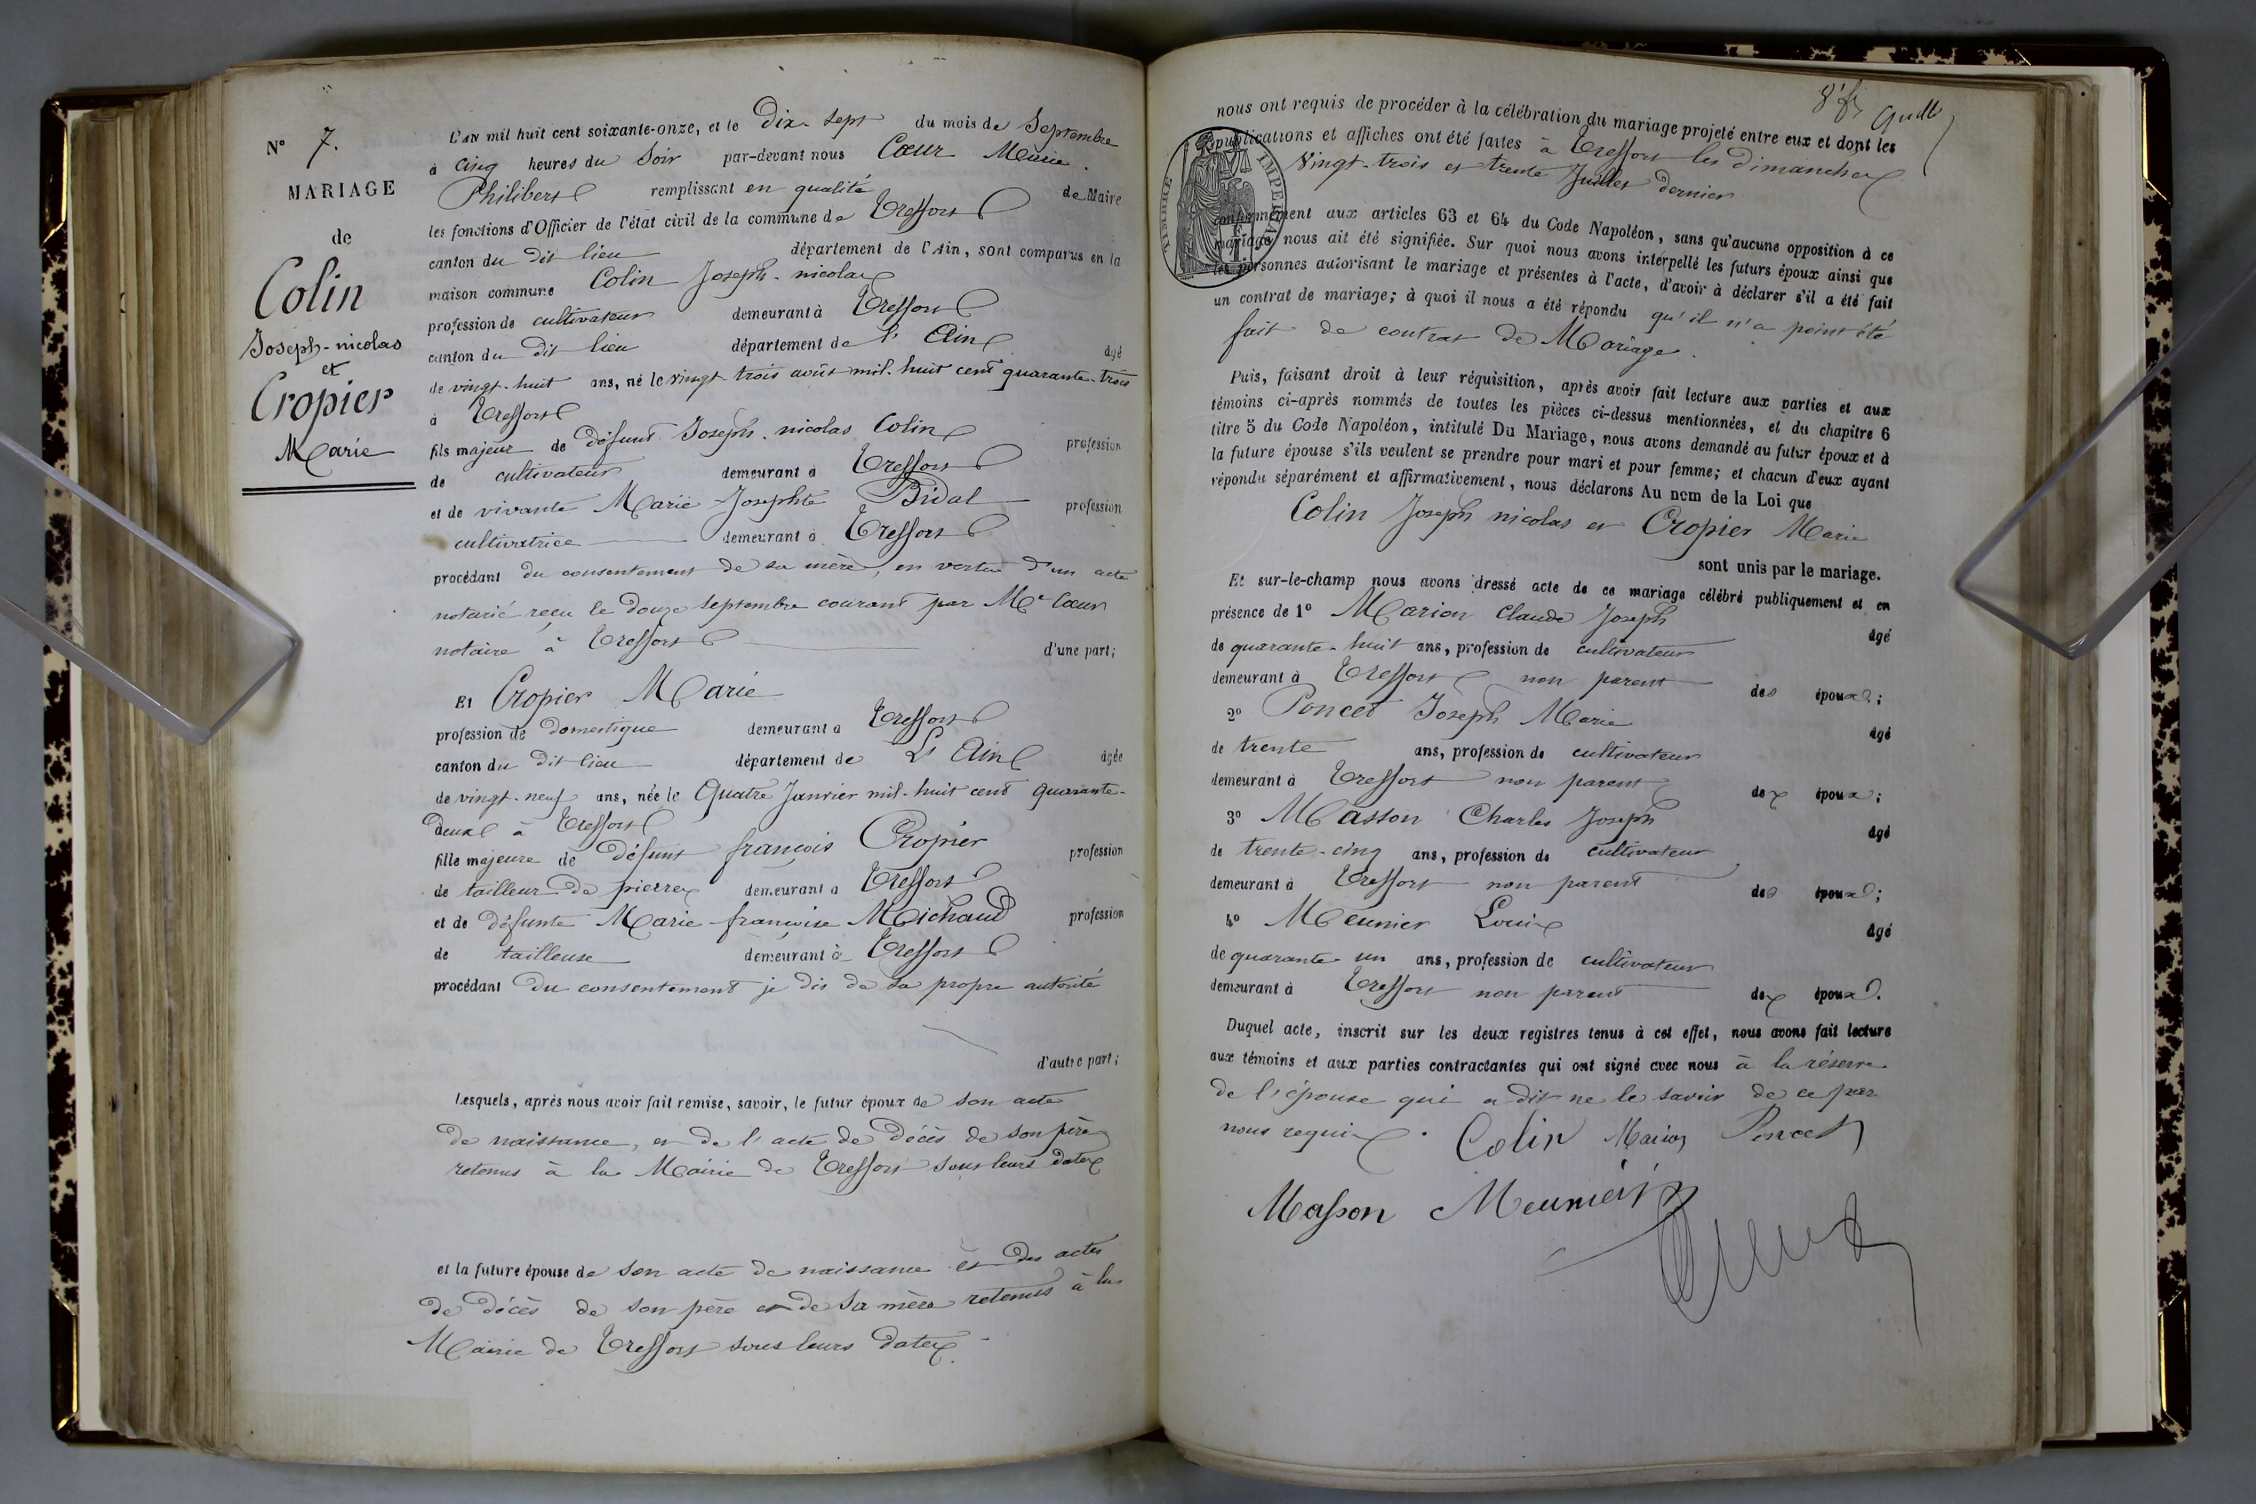 N° 7.
MARIAGE
de
Colin
Joseph-nicolas
et
Cropier
Marie
L'an mil huit cent soixante-onze, et le Dix-sept du mois de Septembre
à cinq heures du Soir par-devant nous Cœur Marie
Philibert remplissant en qualité de Maire
les fonctions d'Officier de l'état civil de la commune de Treffort
canton du dit lieu département de l'Ain, sont comparus en la
maison commune Colin Joseph-nicolas
profession de cultivateur demeurant à Treffort
canton du dit lieu département de l'Ain âgé
de vingt-huit ans, né le vingt-trois août mil-huit cent quarante-trois
à Treffort
fils majeur de défunt Joseph-nicolas Colin profession
de cultivateur demeurant à Treffort
et de vivante Marie Josephte Bidal profession
cultivatrice demeurant à Treffort
procédant du consentement de sa mère, en vertu d'un acte
notarié reçu le douze septembre courant par Me Cœur
notaire à Treffort d'une part;
Et Cropier Marie
profession de domestique demeurant à Treffort
canton du dit lieu département de L'Ain âgée
de vingt-neuf ans, née le Quatre Janvier mil-huit cent quarante-
deux à Treffort
fille majeure de défunt françois Cropier profession
de tailleur de pierres demeurant à Treffort
et de défunte Marie-françoise Michaud profession
de tailleuse demeurant à Treffort
procédant du consentement je dis de sa propre autorité
d'autre part;
Lesquels, après nous avoir fait remise, savoir, le futur époux de son acte
de naissance, et de l'acte de décès de son père
retenus à la Mairie de Treffort sous leurs dates
et la future épouse de son acte de naissance et des actes
de décès de son père et de sa mère retenus à la
Mairie de Treffort sous leurs dates.
nous ont requis de procéder à la célébration du mariage projeté entre eux et dont les
publications et affiches ont été faites à Treffort les dimanches
vingt-trois et trente Juillet dernier
TIMBRE IMPERIAL
conformément aux articles 63 et 64 du Code Napoléon, sans qu'aucune opposition à ce
mariage nous ait été signifiée. Sur quoi nous avons interpellé les futurs époux ainsi que
les personnes autorisant le mariage et présentes à l'acte, d'avoir à déclarer s'il a été fait
un contrat de mariage; à quoi il nous a été répondu qu'il n'a point été
fait de contrat de Mariage.
Puis, faisant droit à leur réquisition, après avoir fait lecture aux parties et aux
témoins ci-après nommés de toutes les pièces ci-dessus mentionnées, et du chapitre 6
titre 5 du Code Napoléon, intitulé Du Mariage, nous avons demandé au futur époux et à
la future épouse s'ils veulent se prendre pour mari et pour femme; et chacun d'eux ayant
répondu séparément et affirmativement, nous déclarons Au nom de la Loi que
Colin Joseph nicolas et Cropier Marie
sont unis par le mariage.
Et sur-le-champ nous avons dressé acte de ce mariage célébré publiquement et en
présence de 1° Marion Claude Joseph âgé
de quarante-huit ans, profession de cultivateur
demeurant à Treffort non parent des époux;
2° Poncet Joseph Marie âgé
de trente ans, profession de cultivateur
demeurant à Treffort non parent des époux;
3° Masson Charles Joseph âgé
de trente-cinq ans, profession de cultivateur
demeurant à Treffort non parent des époux;
4° Meunier Louis âgé
de quarante-un ans, profession de cultivateur
demeurant à Treffort non parent des époux.
Duquel acte, inscrit sur les deux registres tenus à cet effet, nous avons fait lecture
aux témoins et aux parties contractantes qui ont signé avec nous à la réserve
de l'épouse qui a dit ne le savoir de ce par
nous requis. Colin Marion Poncet
Masson Meunier